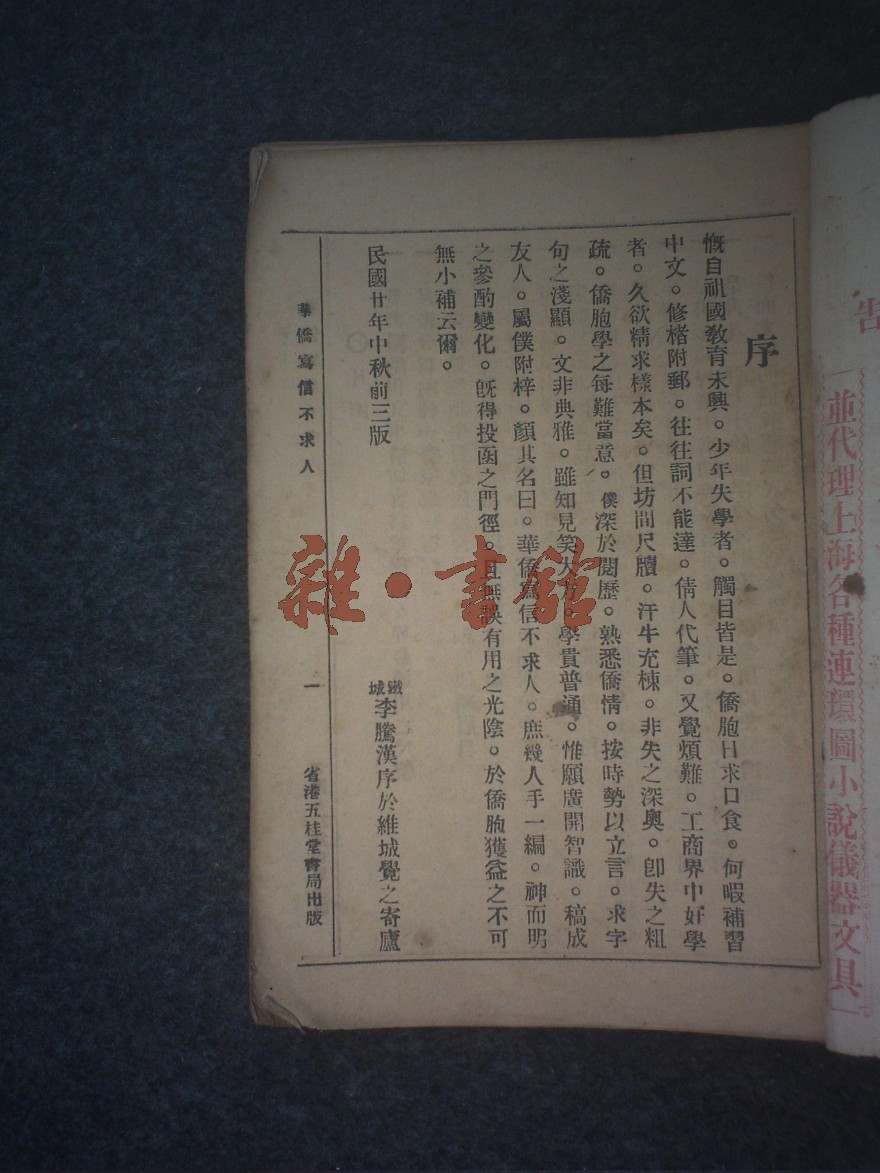 序
慨自祖國敎育未興。少年失學者。觸目皆是。僑胞日求口食。何暇補習
中文。修楮附郵。往往詞不能達。倩人代筆。又覺煩難。工商界中好學
者。久欲精求樣本矣。但坊間尺牘。汗牛充棟。非失之深奧。卽失之粗
疏。僑胞學之每難當意。僕深於閱歷。熟悉僑情。按時勢以立言。求字
句之淺顯。文非典雅。雖知見笑大方。學貴普通。惟願廣開智識。稿成
友人。屬僕附梓。顏其名曰。華僑寫信不求人。庶幾人手一編。神而明
之參酌變化。旣得投函之門徑。且無誤有用之光陰。於僑胞獲益之不可
無小補云爾。
民國廿年中秋前三版
鐵城李騰漢序於維城覺之寄廬
華僑寫信不求人
一
省港五桂堂書局出版
雜·書館
並代理上海各種連環圖小說儀器文具